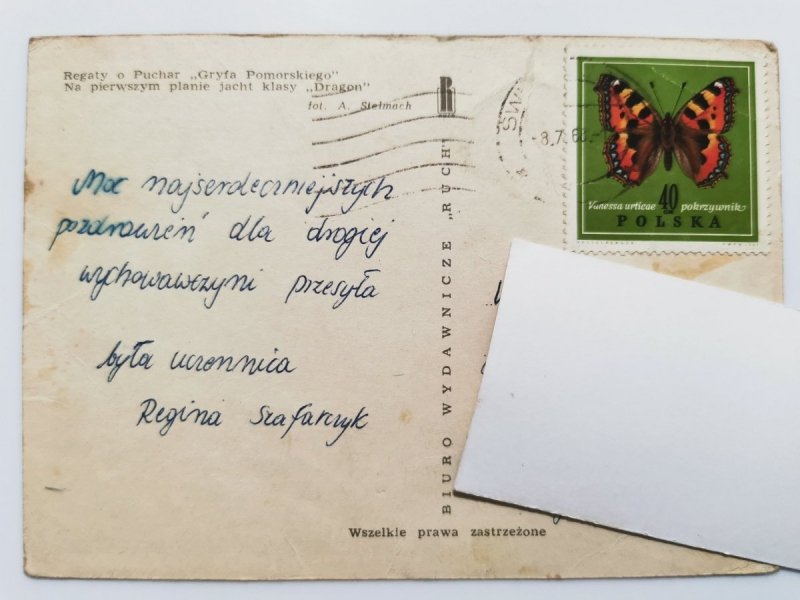 Regaty o Puchar „Gryfa Pomorskiego"
Na pierwszym planie jacht klasy „Dragon"
fot. A. Stelmach
R
Moc najserdeczniejszych
pozdrowień dla drogiej
wychowawczyni przesyła
była uczennica
Regina Szafarczyk
BIURO WYDAWNICZE „RUCH"
Wszelkie prawa zastrzeżone
ŚW
-8.7.68
Vanessa urticae 40 pokrzywnik
POLSKA